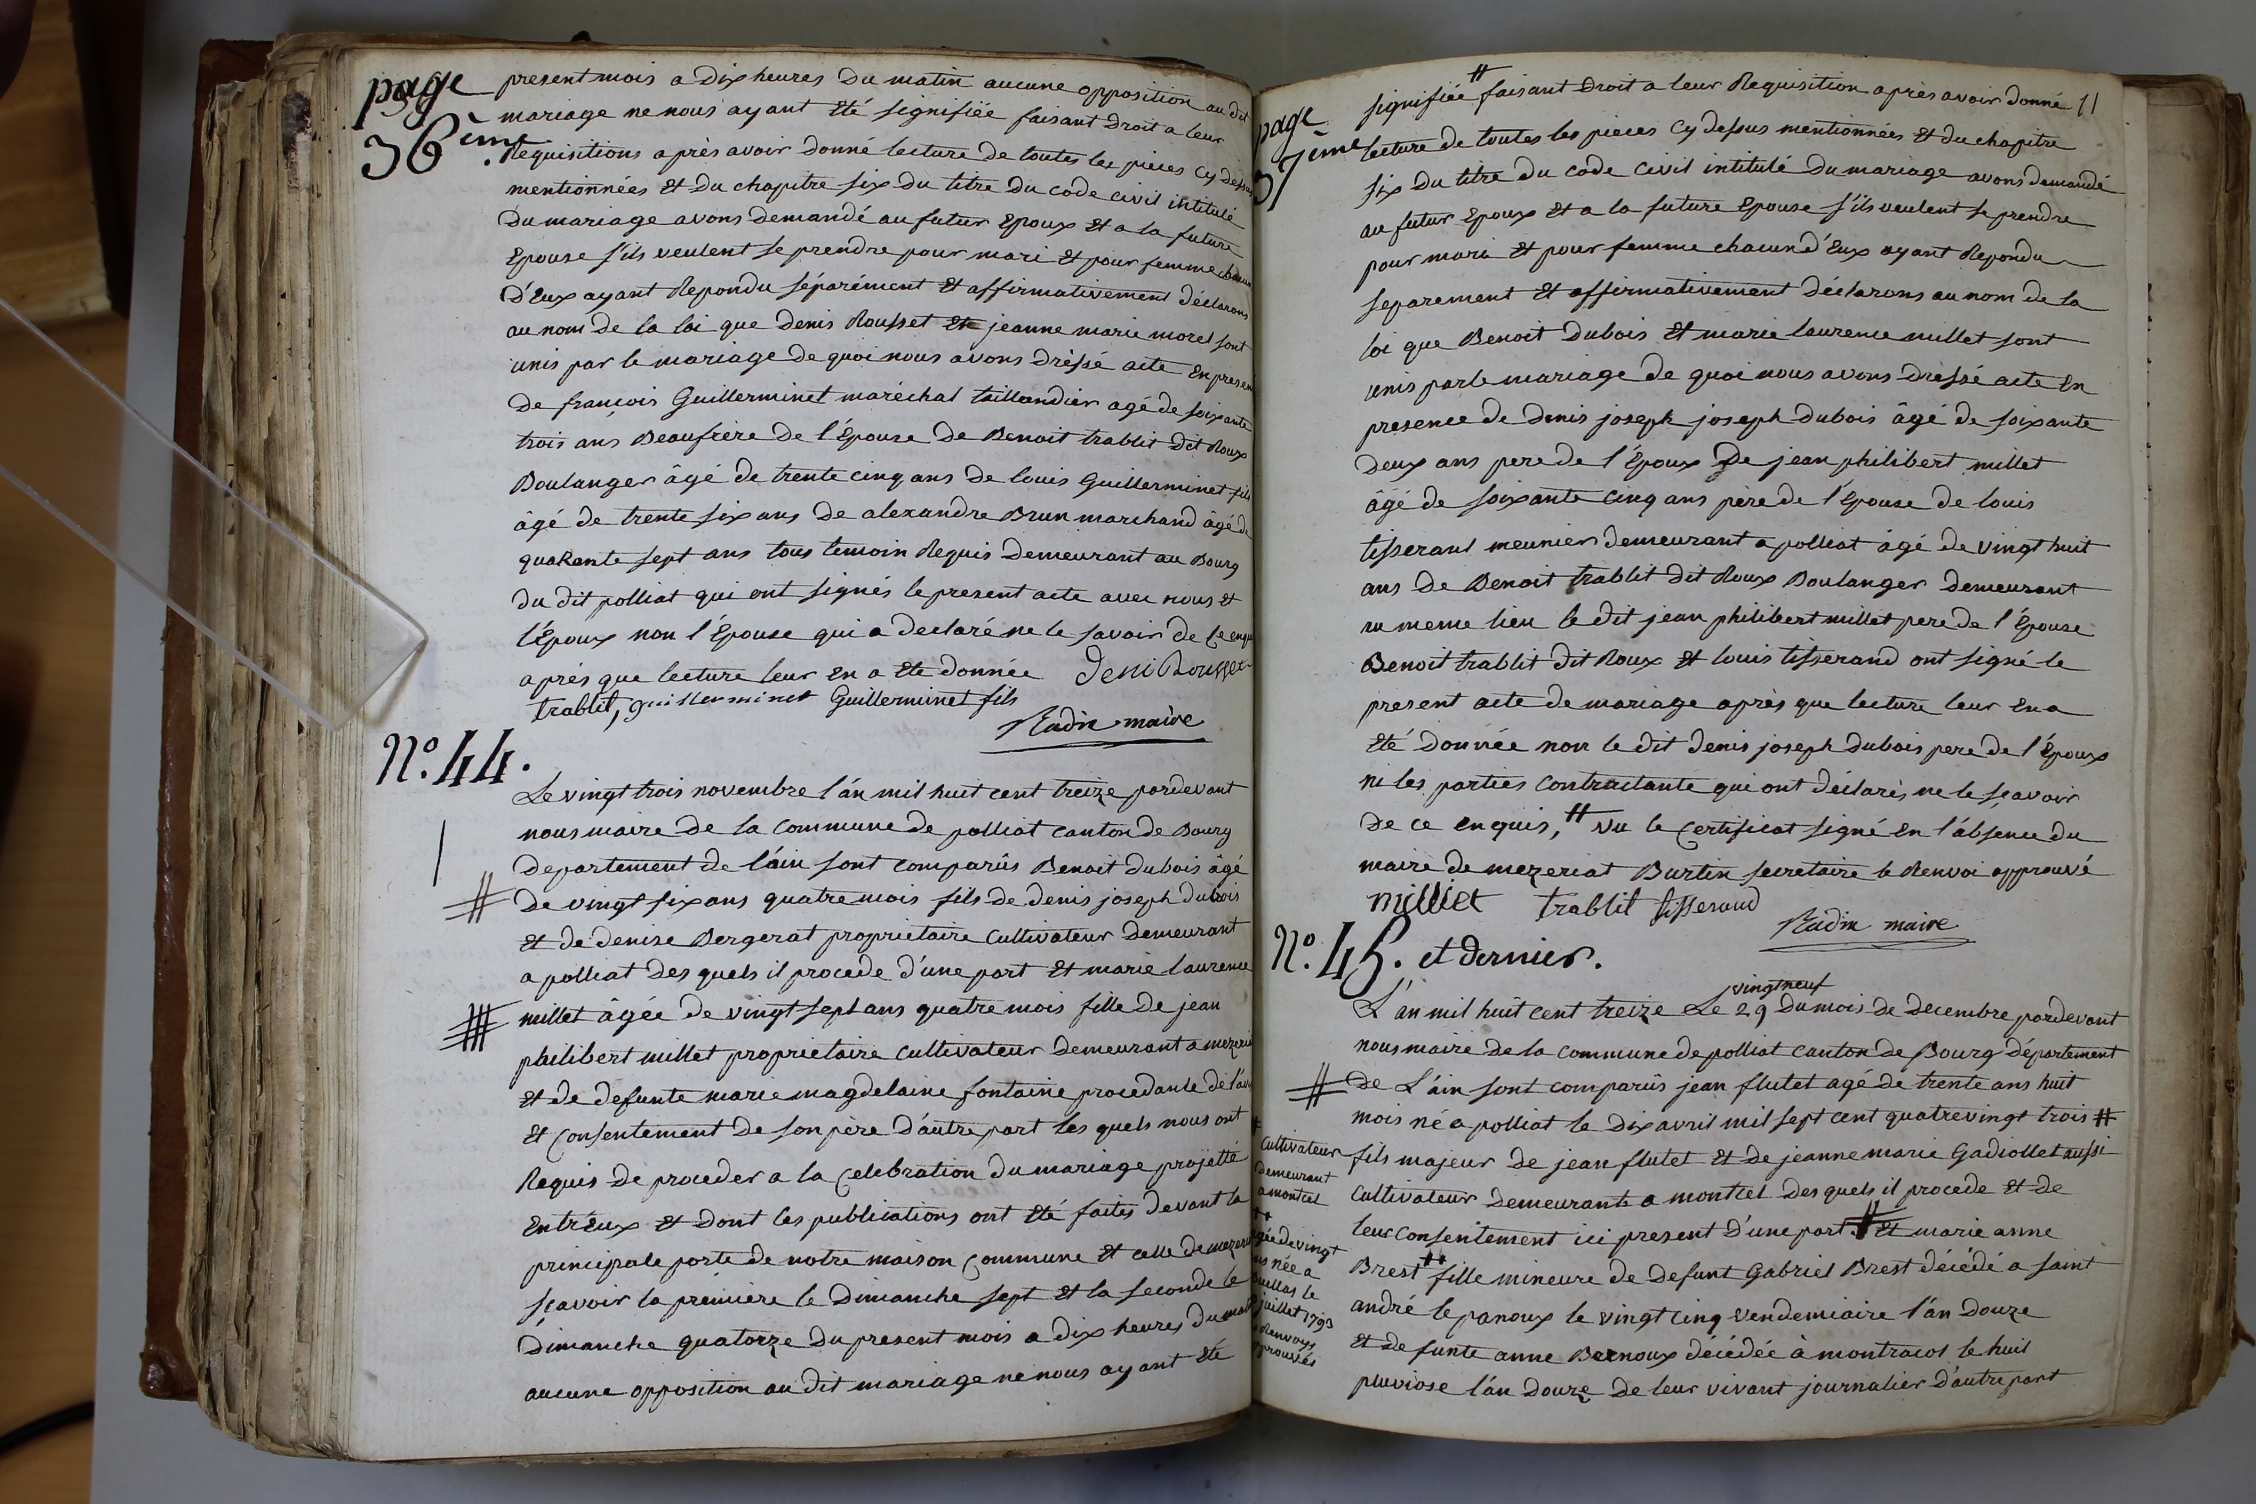 page
36ème
present mois a Dix heures Du matin aucune opposition au dit
mariage ne nous ayant Eté signifiée faisant Droit a leur
Requisitions après avoir donné lecture de toutes les pièces Cy dessus
mentionnées Et Du chapitre six Du titre Du code civil intitulé
Du mariage avons Demandé au futur Epoux Et a la future
Epouse s'ils veulent se prendre pour mari Et pour femme chacun
D'Eux ayant Repondu séparément Et affirmativement Déclarons
au nom de la loi que Denis Rousset Et jeanne marie morel sont
unis par le mariage De quoi nous avons Dréssé acte En presen
De françois Guillerminet maréchal taillandier agé de soixante
trois ans Beaufrère De l'Epouse De Benoit trablit Dit Roux
Boulanger âgé De trente cinq ans De louis Guillerminet fils
âgé De trente six ans De alexandre Brun marchand âgé de
quaRante sept ans tous temoin Requis Demeurant au Bourg
Du Dit polliat qui ont signés le present acte avec nous Et
l'Epoux non l'Epouse qui a Declaré ne le savoir De Ce enquis
après que lecture leur En a Eté donnée Deni Rousset
trablit, guillerminet Guillerminet fils
Radix maire
N.o 44.
Le vingt trois novembre l'án mil huit cent treize pardevant
nous maire De la Commune De polliat canton De Bourg
Departement De l'áin sont comparûs Benoit Dubois âgé
De vingt six ans quatre mois fils De Denis joseph Dubois
Et De Denise Bergerat proprietaire Cultivateur Demeurant
a polliat Des quels il procede D'une part Et marie laurence
millet âgée De vingt sept ans quatre mois fille De jean
philibert millet proprietaire Cultivateur Demeurant a mezeria
Et De Defunte marie magdelaine fontaine procedante De l'avi
Et Consentement De son père D'autre part les quels nous ont
Requis De proceder a la Celebration Du mariage projetté
Entr'Eux Et Dont les publications ont Eté faites Devant la
principale porte De notre maison Commune Et celle De mezeriat
sçavoir la première le Dimanche sept Et la seconde le
Dimanche quatorze Du present mois a Dix heures Du matin
aucune opposition au Dit mariage ne nous ayant Eté
page
37ème
signifiée # faisant Droit a leur Requisition après avoir Donné
lecture De toutes les pieces Cy dessus mentionnées Et Du chapitre
six Du titre Du code Civil intitulé Du mariage avons Demandé
au futur Epoux Et a la future Epouse s'ils veulent se prendre
pour mari Et pour femme chacun d'Eux ayant Repondu
separement Et affirmativement Déclarons au nom De la
loi que Benoit Dubois Et marie laurence millet sont
unis par le mariage De quoi nous avons Dréssé acte En
presence De Denis joseph joseph Dubois âgé De soixante
Deux ans pere De l'Epoux De jean philibert millet
âgé De soixante Cinq ans père De l'Epouse De louis
tisserant meunier Demeurant a polliat âgé De vingt huit
ans De Benoit trablit Dit Roux Boulanger Demeurant
au meme lieu le Dit jean philibert millet pere De l'Epouse
Benoit trablit Dit Roux Et louis tisserand ont signé le
present acte De mariage après que lecture leur En a
Eté Donnée non le Dit Denis joseph Dubois pere De l'Epoux
ni les parties Contractante qui ont Déclarés ne le sçavoir
De Ce enquis, # vu le Certificat signé En l'absence Du
maire De mezeriat Burtin secretaire le Renvoi approuvé
milliet trablit tisserand
Radix maire
N.o 45. et dernier.
vingt neuf
L'án mil huit Cent treize Le 29 Du mois De Decembre pardevant
nous maire De la Commune De polliat Canton De Bourg Département
De L'áin sont Comparûs jean flutet agé De trente ans huit
mois né a polliat le Dix avril mil sept cent quatrevingt trois #
fils majeur De jean flutet Et De jeanne marie Gadiollet aussi
Cultivateur Demeurants a montcet Des quels il procede Et De
leur Consentement ici present D'une part # Et marie anne
Brest ++ fille mineure De Defunt Gabriel Brest Décédé a saint
andré le panoux le vingt Cinq vendemiaire l'án Douze
Et De funte anne Bernoux Décédée à montracol le huit
pluviose l'án Douze De leur vivant journalier D'autre part
#
Cultivateur
Demeurant
a montcet
++
gée De vingt
ns née a
uellas le
juillet 1793
Renvoys
prouvés